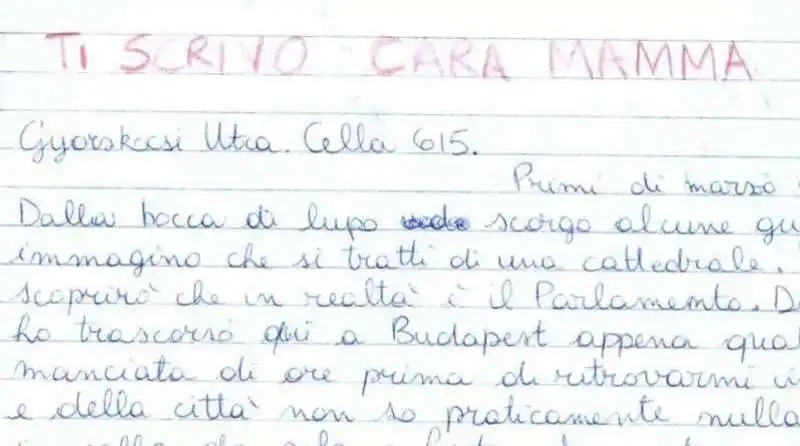 TI SCRIVO CARA MAMMA
Gyorskcsi Utca. Cella 615.
Primi di marzo
Dalla bocca di lupo scorgo alcune
immagino che si tratti di una cattedrale.
scoprirò che in realtà è il Parlamento.
ho trascorso qui a Budapest appena
manciata di ore prima di ritrovarmi
e della città non so praticamente nulla